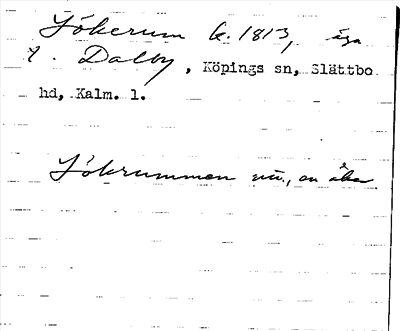 Sökerum k. 1813, äga
t. Dalby, Köpings sn, Slättbo
hd, Kalm. l.
Sökrummen nu., en åker